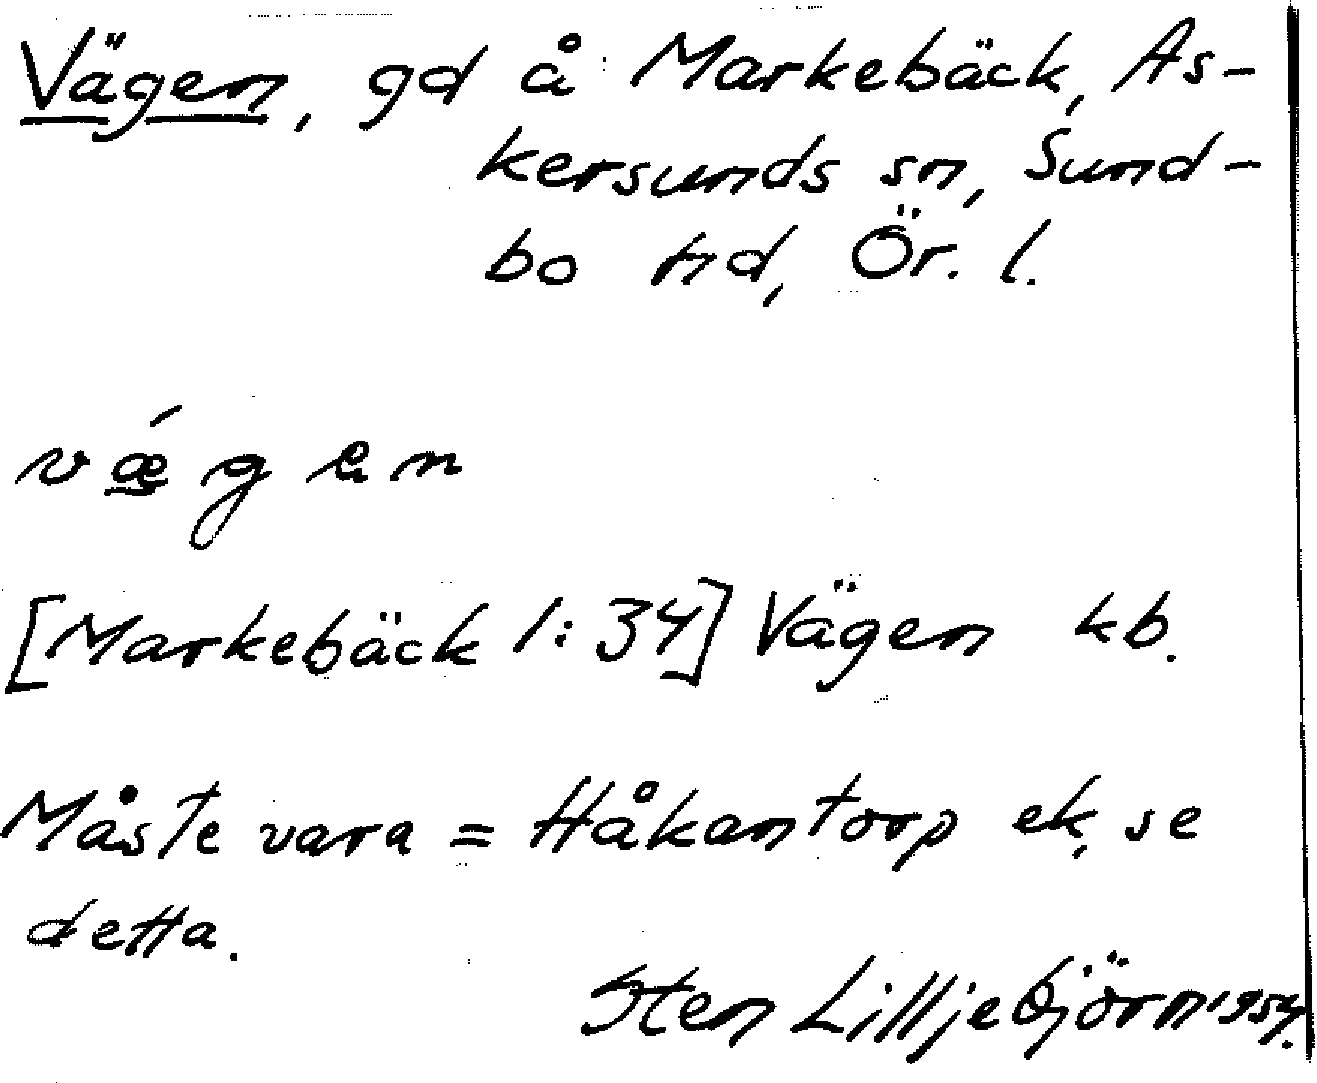 Vägen, gd å Markebäck, As-
kersunds sn, Sund-
bo hd, Ör. l.
vǽgen
[Markebäck 1:34] Vägen kb.
Måste vara = Håkantorp ek, se
detta.
Sten Lilljebjörn 1954.